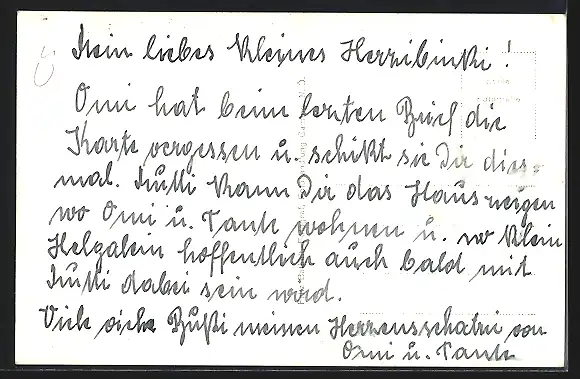 Mein liebes kleines Herzibinki!
Omi hat beim letzten Brief die
Karte vergessen u. schikt sie Dir dies-
mal. Mutti kann Dir das Haus zeigen
wo Omi u. Tante wohnen u. wo klein
Helgalein hoffentlich auch bald mit
Mutti dabei sein wird.
Viele Bußi meinen Herzensschatzi von
Omi u. Tante